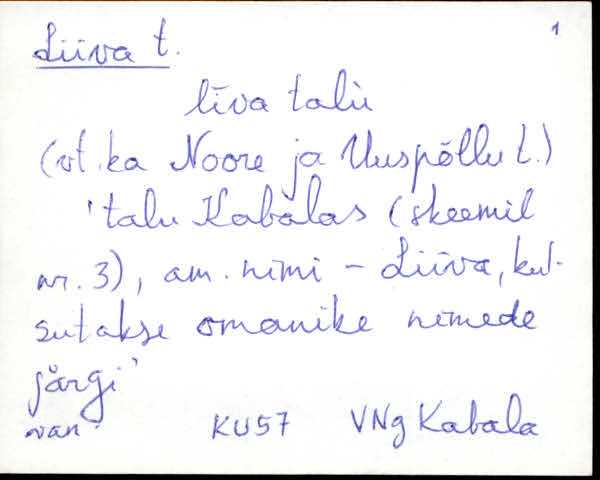 1
Liiva t.
līva talu
(vt. ka Noore ja Uuspõllu t.)
'talu Kabalas (skeemil
nr. 3), am. nimi - Liiva, kut-
sutakse omanike nimede
järgi'
van KU57 VNg Kabala